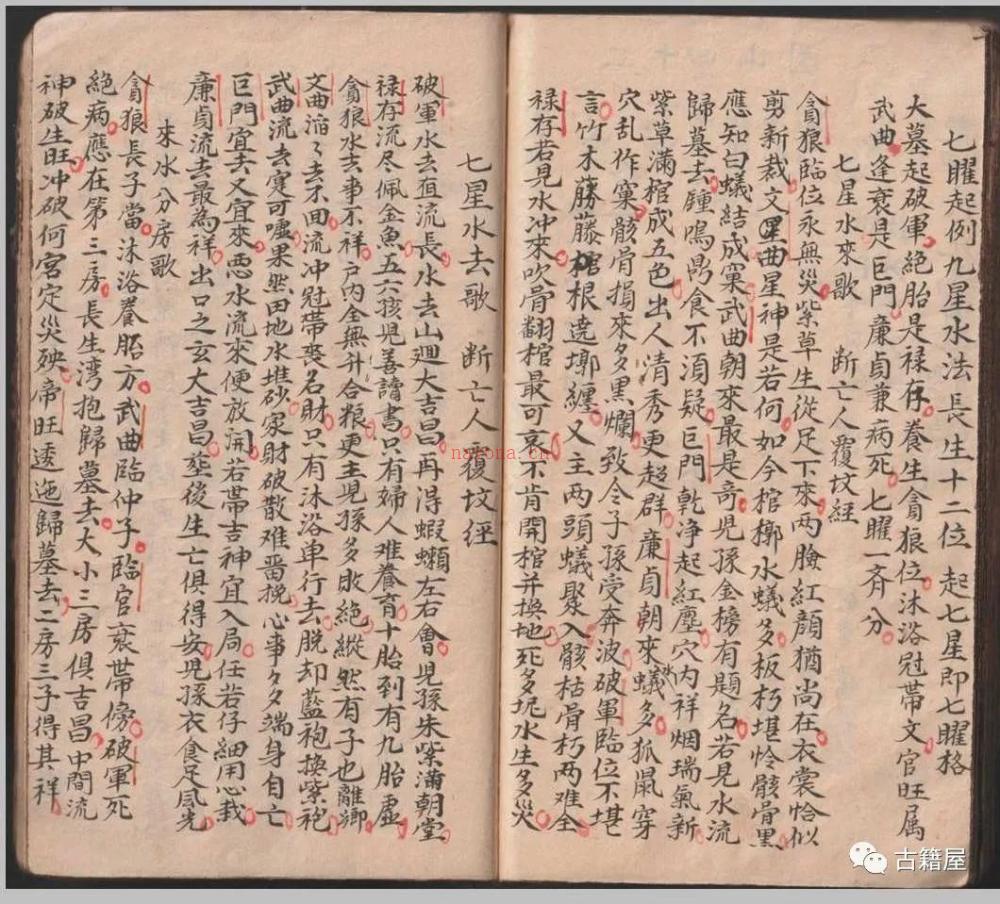 七曜起例九星水法長生十二位 起七星即七曜格
大墓起破軍絕胎是禄存養生貪狼位沐浴冠帶文官旺属
武曲逢衰是巨門廉貞兼病死七曜一齊分
七星水來歌 断亡人覆坟經
貪狼臨位永無災紫草生從足下來两臉紅顏猶尚在衣裳恰似
剪新裁文曲星神是若何如今棺槨水蟻多板朽堪怜骸骨黑
應知白蟻結成窠武曲朝來最是奇児孫金榜有題名若見水流
歸墓去鍾鳴鼎食不須疑巨門乾净起紅塵穴内祥烟瑞氣新
紫草滿棺成五色出人清秀更超群廉貞朝來蟻多狐鼠穿
穴乱作窠骸骨損來多黑爛致令子孫受奔波破軍臨位不堪
言竹木藤藤棺根遶墎纏又主两頭蟻聚入骸枯骨朽两难全
禄存若見水冲來吹骨翻棺最可哀不肯開棺并換地死多坭水生多災
七星水去歌 断亡人覆坟經
破軍水去亘流長水去山廻大吉昌再得蝦𧕴左右會児孫朱紫滿朝堂
禄存流尽佩金魚五六孩児善讀書只有婦人难養育十胎到有九胎虛
貪狼水去事不祥户内全無升合粮更主児孫多敗絕縱然有子也離鄉
文曲滔々去不囬流冲冠帶喪名財只有沐浴車行去脱却藍袍換紫袍
武曲流去寔可嘘果然田地水堆砂家財破散难畱挽心事々多端身自亡
巨門宜去又宜來悪水流來便放開若帶吉神宜入局任若仔細用心栽
廉貞流去最為祥出口之玄大吉昌塟後生亡俱得安児孫衣食足風光
來水分房歌
貪狼長子當沐浴養胎方武曲臨仲子臨官衰帶傍破軍死
絕病應在第三房長生湾抱歸墓去大小三房俱吉昌中間流
神破生旺冲破何宮定災殃帝旺逶迤歸墓去二房三子得其祥
nabona.cn
古籍屋